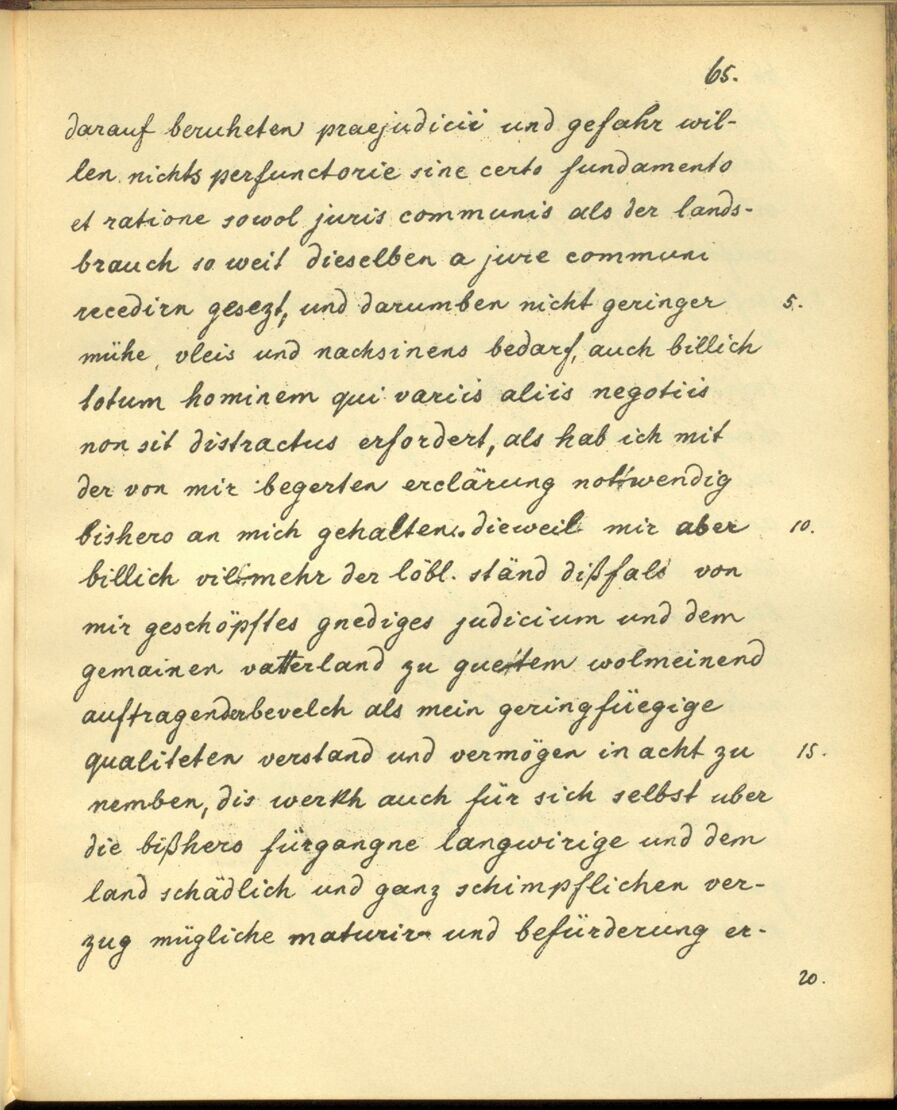 65.
darauf beruheten praejudicii und gefahr wil-
len nichts perfunctorie sine certo fundamento
et ratione sowol juris communis als der lands-
brauch so weit dieselben a jure communi
recedirn gesezt, und darumben nicht geringer 5.
mühe, vleis und nachsinens bedarf, auch billich
totum hominem qui variis aliis negotiis
non sit distractus erfordert, als hab ich mit
der von mir begerten erclärung nottwendig
bishero an mich gehalten. dieweil mir aber 10.
billich vilmehr der löbl. ständ dißfals von
mir geschöpftes gnediges judicium und dem
gemainen vatterland zu guetem wolmeinend
auftragender bevelch als mein geringfüegige
qualiteten verstand und vermögen in acht zu 15.
nemben, dis werkh auch für sich selbst uber
die bißhero fürgangne langwirige und dem
land schädlich und ganz schimpflichen ver-
zug mügliche maturir- und befürderung er-
20.